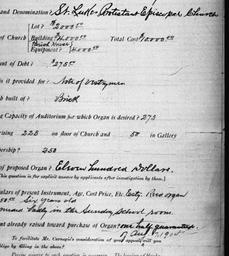 and Denomination, St. Luke's Protestant Episcopal Church
Lot? $2000.00
of Church Building $6000.00 Total Cost $12000.00
Parish House
Equipment? $4000.00
of Debt? $2750
is it provided for? Note of vestrymen
built of? Brick
Capacity of Auditorium for which Organ is desired? 275
225 on floor of Church and 50 in Gallery
450
of proposed Organ? Eleven hundred Dollars.
(This question is for explicit answer by applicants after investigation by them.)
of present Instrument, Age, Cost Price, Etc. Reed organ
Six years old
in the Sunday school room.
already raised toward purchase of Organ? one half guaranteed.
To facilitate Mr. Carnegie's consideration of your appeal will you
in filling in the above?